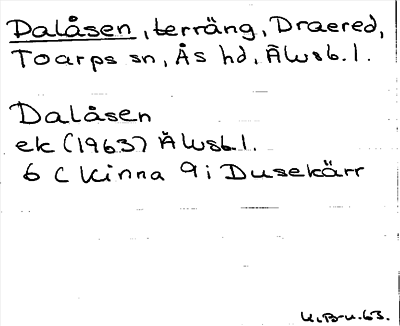 Dalåsen, terräng, Draered,
Toarps sn, Ås hd, Älvsb. l.
Dalåsen
ek (1963) Älvsb l.
6 C Kinna 9 i Dusekärr
U.B-u.63.